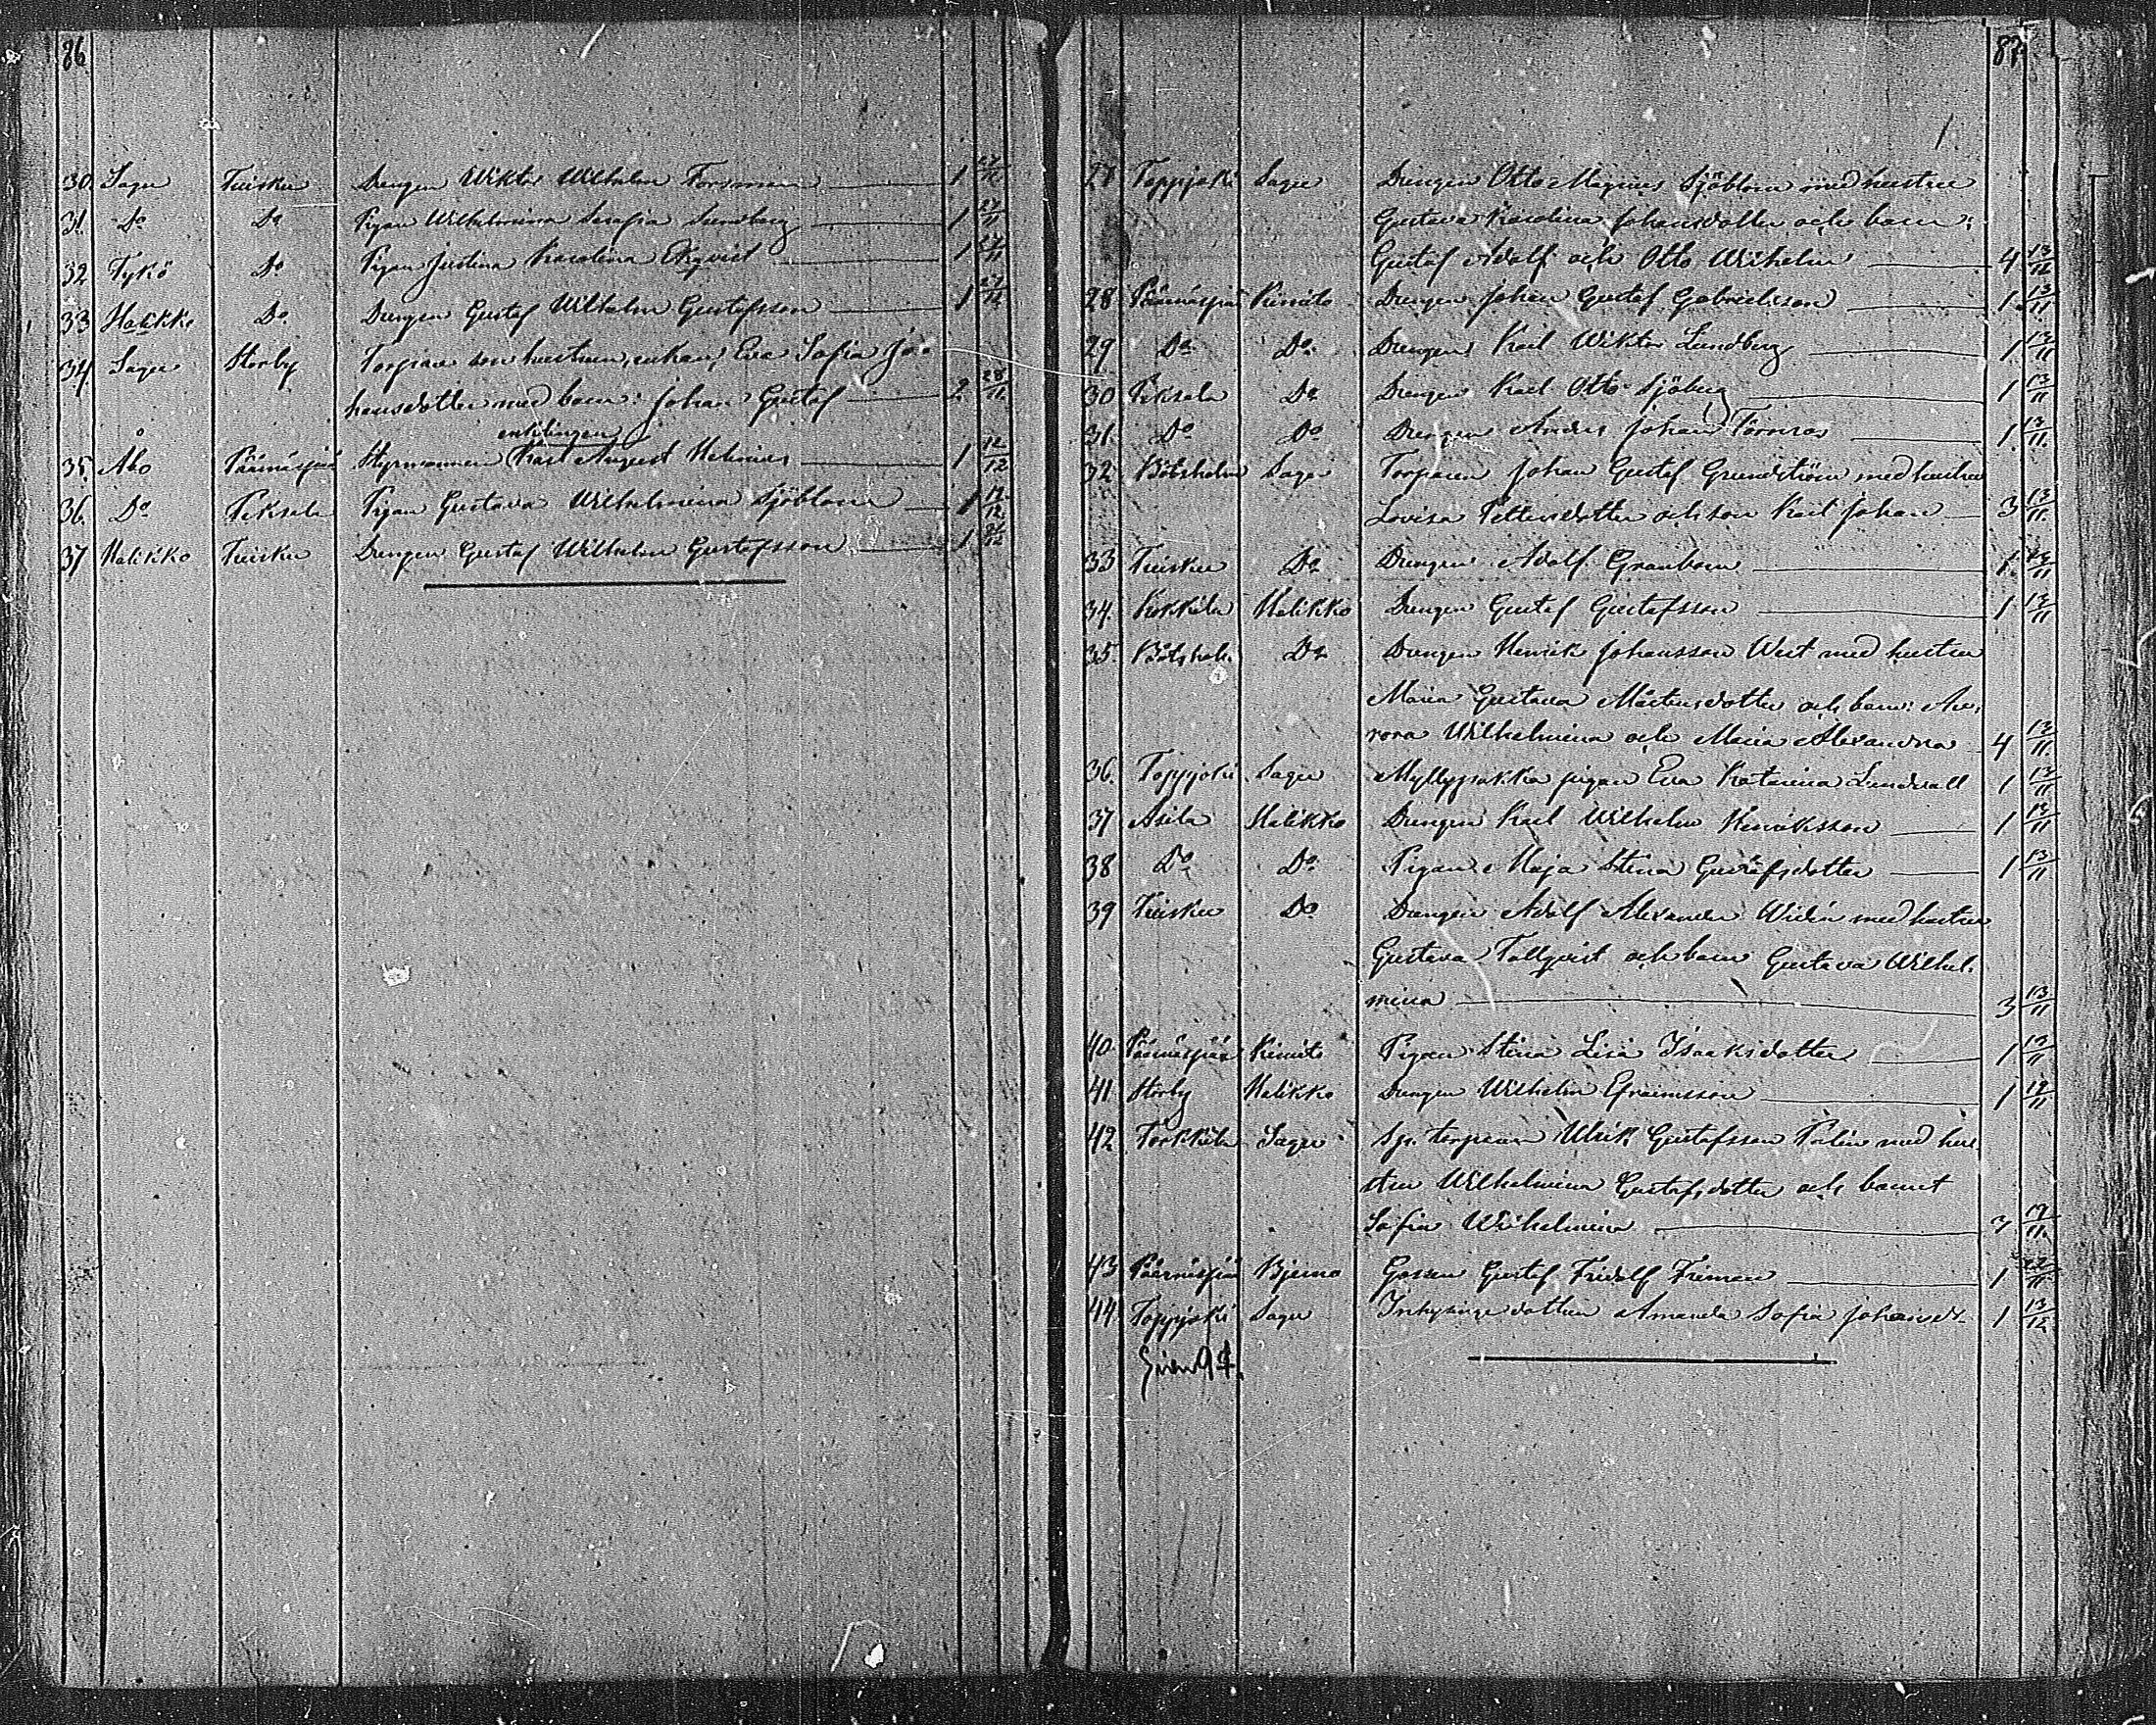 86
30. Sagu Tuisku Drengen Wiktor Wilhelm Forsman 1 27/11
31. Do Do Pigan Wilhelmina Serafia Sundberg 1 27/11
32 Tykö Do Pigan Justina Karolina Ekqvist 1 27/11
33 Halikko Do Drengen Gustaf Wilhelm Gustafsson 1 27/12
34. Sagu Storby Torpare son hustrun, enkan, Eva Sofia Jo-
hansdotter med barn: Johan Gustaf 2. 28/11
enklingen
35. Åbo Päärnäspää Styrmannen Karl August Helenius 1 12/12
36. Do Peksala Pigan Gustava Wilhelmina Sjöblom 1 19/12
37 Halikko Tuisku Drengen Gustaf Wilhelm Gustafsson 1 /12
87.
27 Toppjoki Sagu Drengen Otto Magnus Sjöblom med hustru
Gustava Karolina Johansdotter och barn:
Gustaf Adolf och Otto Wilhelm 4 13/11
28 Päärnäspää Kimito Drengen Johan Gustaf Gabrielsson 1 13/11
29 Do Do Drengen Karl Wiktor Lundberg 1 13/11
30 Peksala Do Drengen Karl Otto Sjöberg 1 13/11
31. Do Do Drengen Anders Johan Törnroos 1 13/11.
32 Båtsholm Sagu Torparen Johan Gustaf Grundström med hustru
Lovisa Pettersdotter och son Karl Johan 3 13/11.
33 Tuisku Do Drengen Adolf Granbom 1 13/11
34. Kokkila Halikko Drengen Gustaf Gustafsson 1 13/11
35. Båtsholm Do Drengen Henrik Johansson West med hustru
Maria Gustava Mårtensdotter och barn: Au-
rora Wilhelmina och Maria Alexandra 4 13/11.
36. Toppjoki Sagu Myllypakka pigan Eva Katarina Lindvall 1 13/11
37 Asila Halikko Drengen Karl Wilhelm Henriksson 1 13/11
38 Do Do Pigan Maja Stina Gustafsdotter 1 13/11
39 Tuisku Do Drengen Adolf Alexander Widén med hustru
Gustava Tallqvist och barn Gustava Wilhel-
mina 3 13/11
40 Päärnäspää Kimito Pigan Stina Lisa Isaksdotter 1 13/11
41 Storby Halikko Drengen Wilhelm Efraimsson 1 19/11
42 Torkkila Sagu Sp. torparen Ulrik Gustafsson Palin med hu-
stru Wilhelmina Gustafsdotter och barnet
Sofia Wilhelmina 3 19/11.
43 Päärnäspää Bjerno Gossen Gustaf Fridolf Friman 1 22/11
44. Toppjoki Sagu Inhysinge dottern Amanda Sofia Johansd- 1 13/12
94.